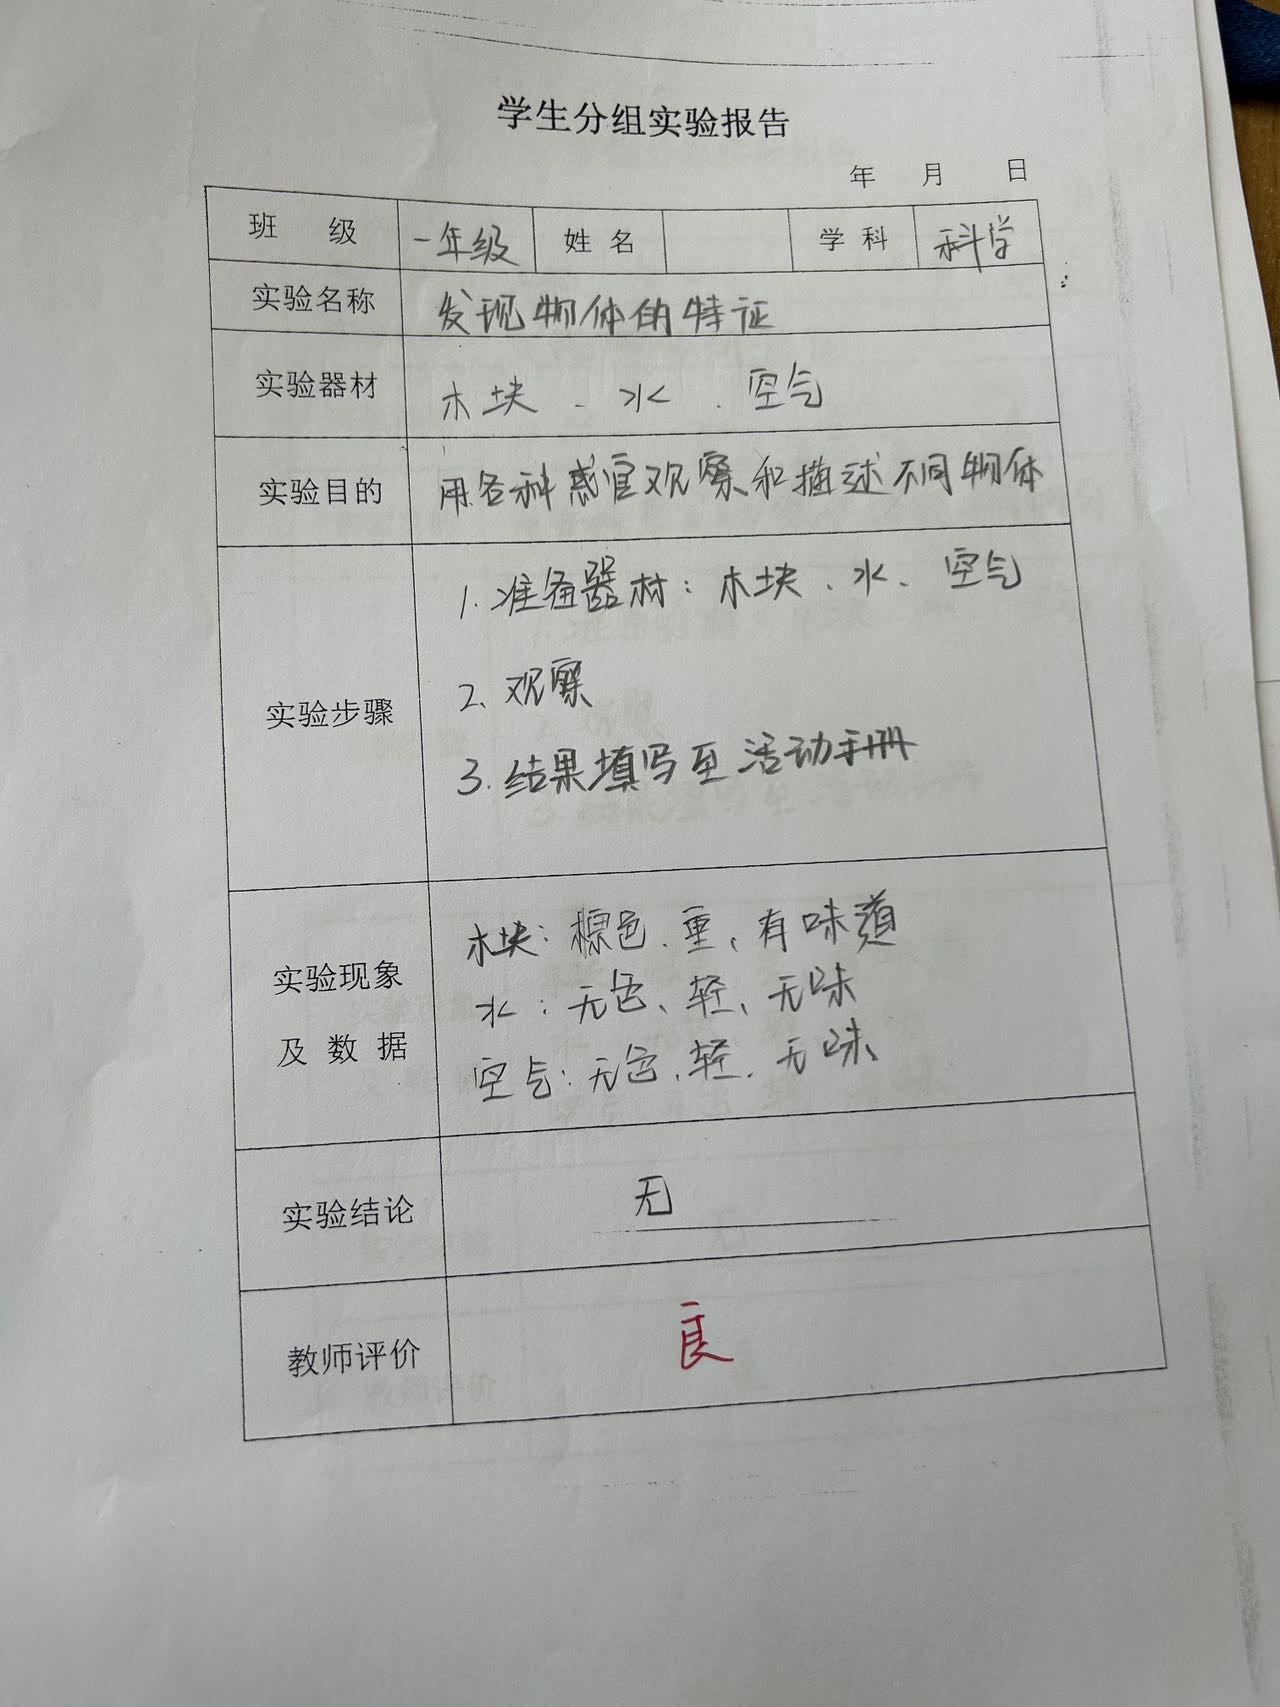 学生分组实验报告
年 月 日
班 级 一年级 姓 名 学 科 科学
实验名称 发现物体的特征
实验器材 木块、水、空气
实验目的 用各种感官观察和描述不同物体
实验步骤
1. 准备器材：木块、水、空气
2、观察
3. 结果填写至活动手册
实验现象
及 数 据
木块：棕色、重、有味道
水：无色、轻、无味
空气：无色、轻、无味
实验结论 无
教师评价 良